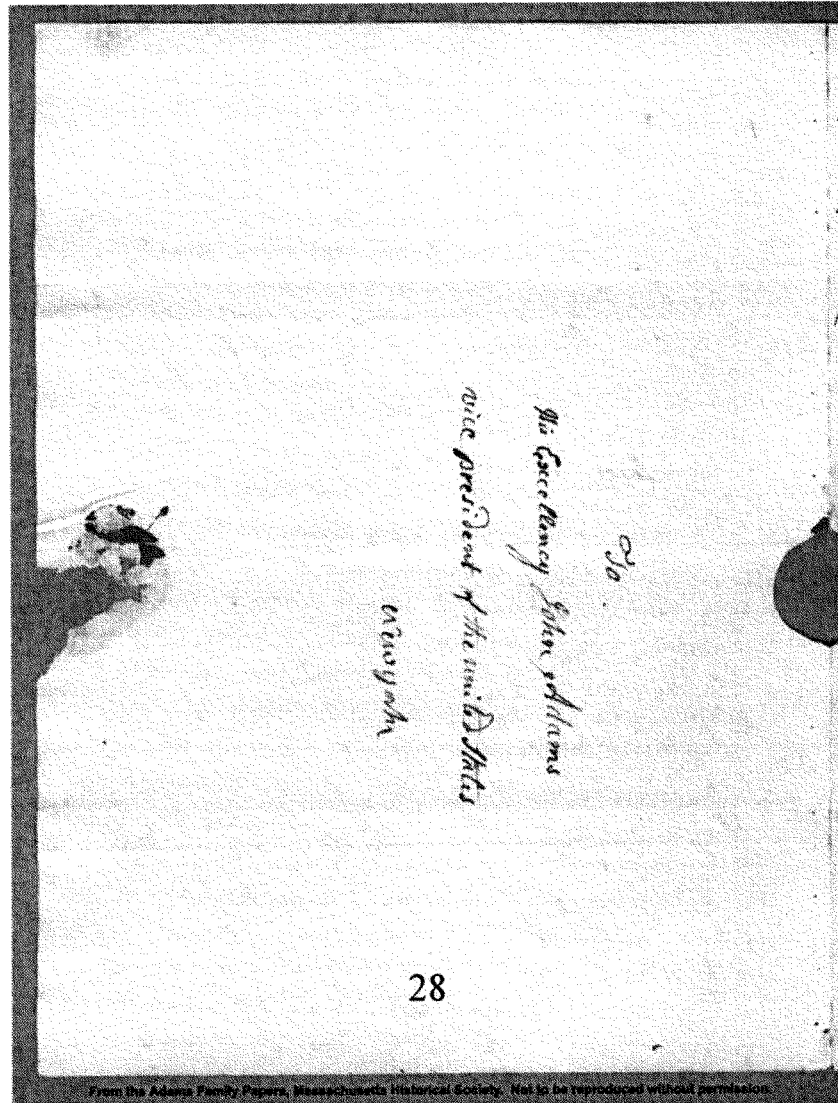 To.
his Excellency John Adams
vice president of the united States
Newyork
28
From the Adams Family Papers, Massachusetts Historical Society. Not to be reproduced without permission.